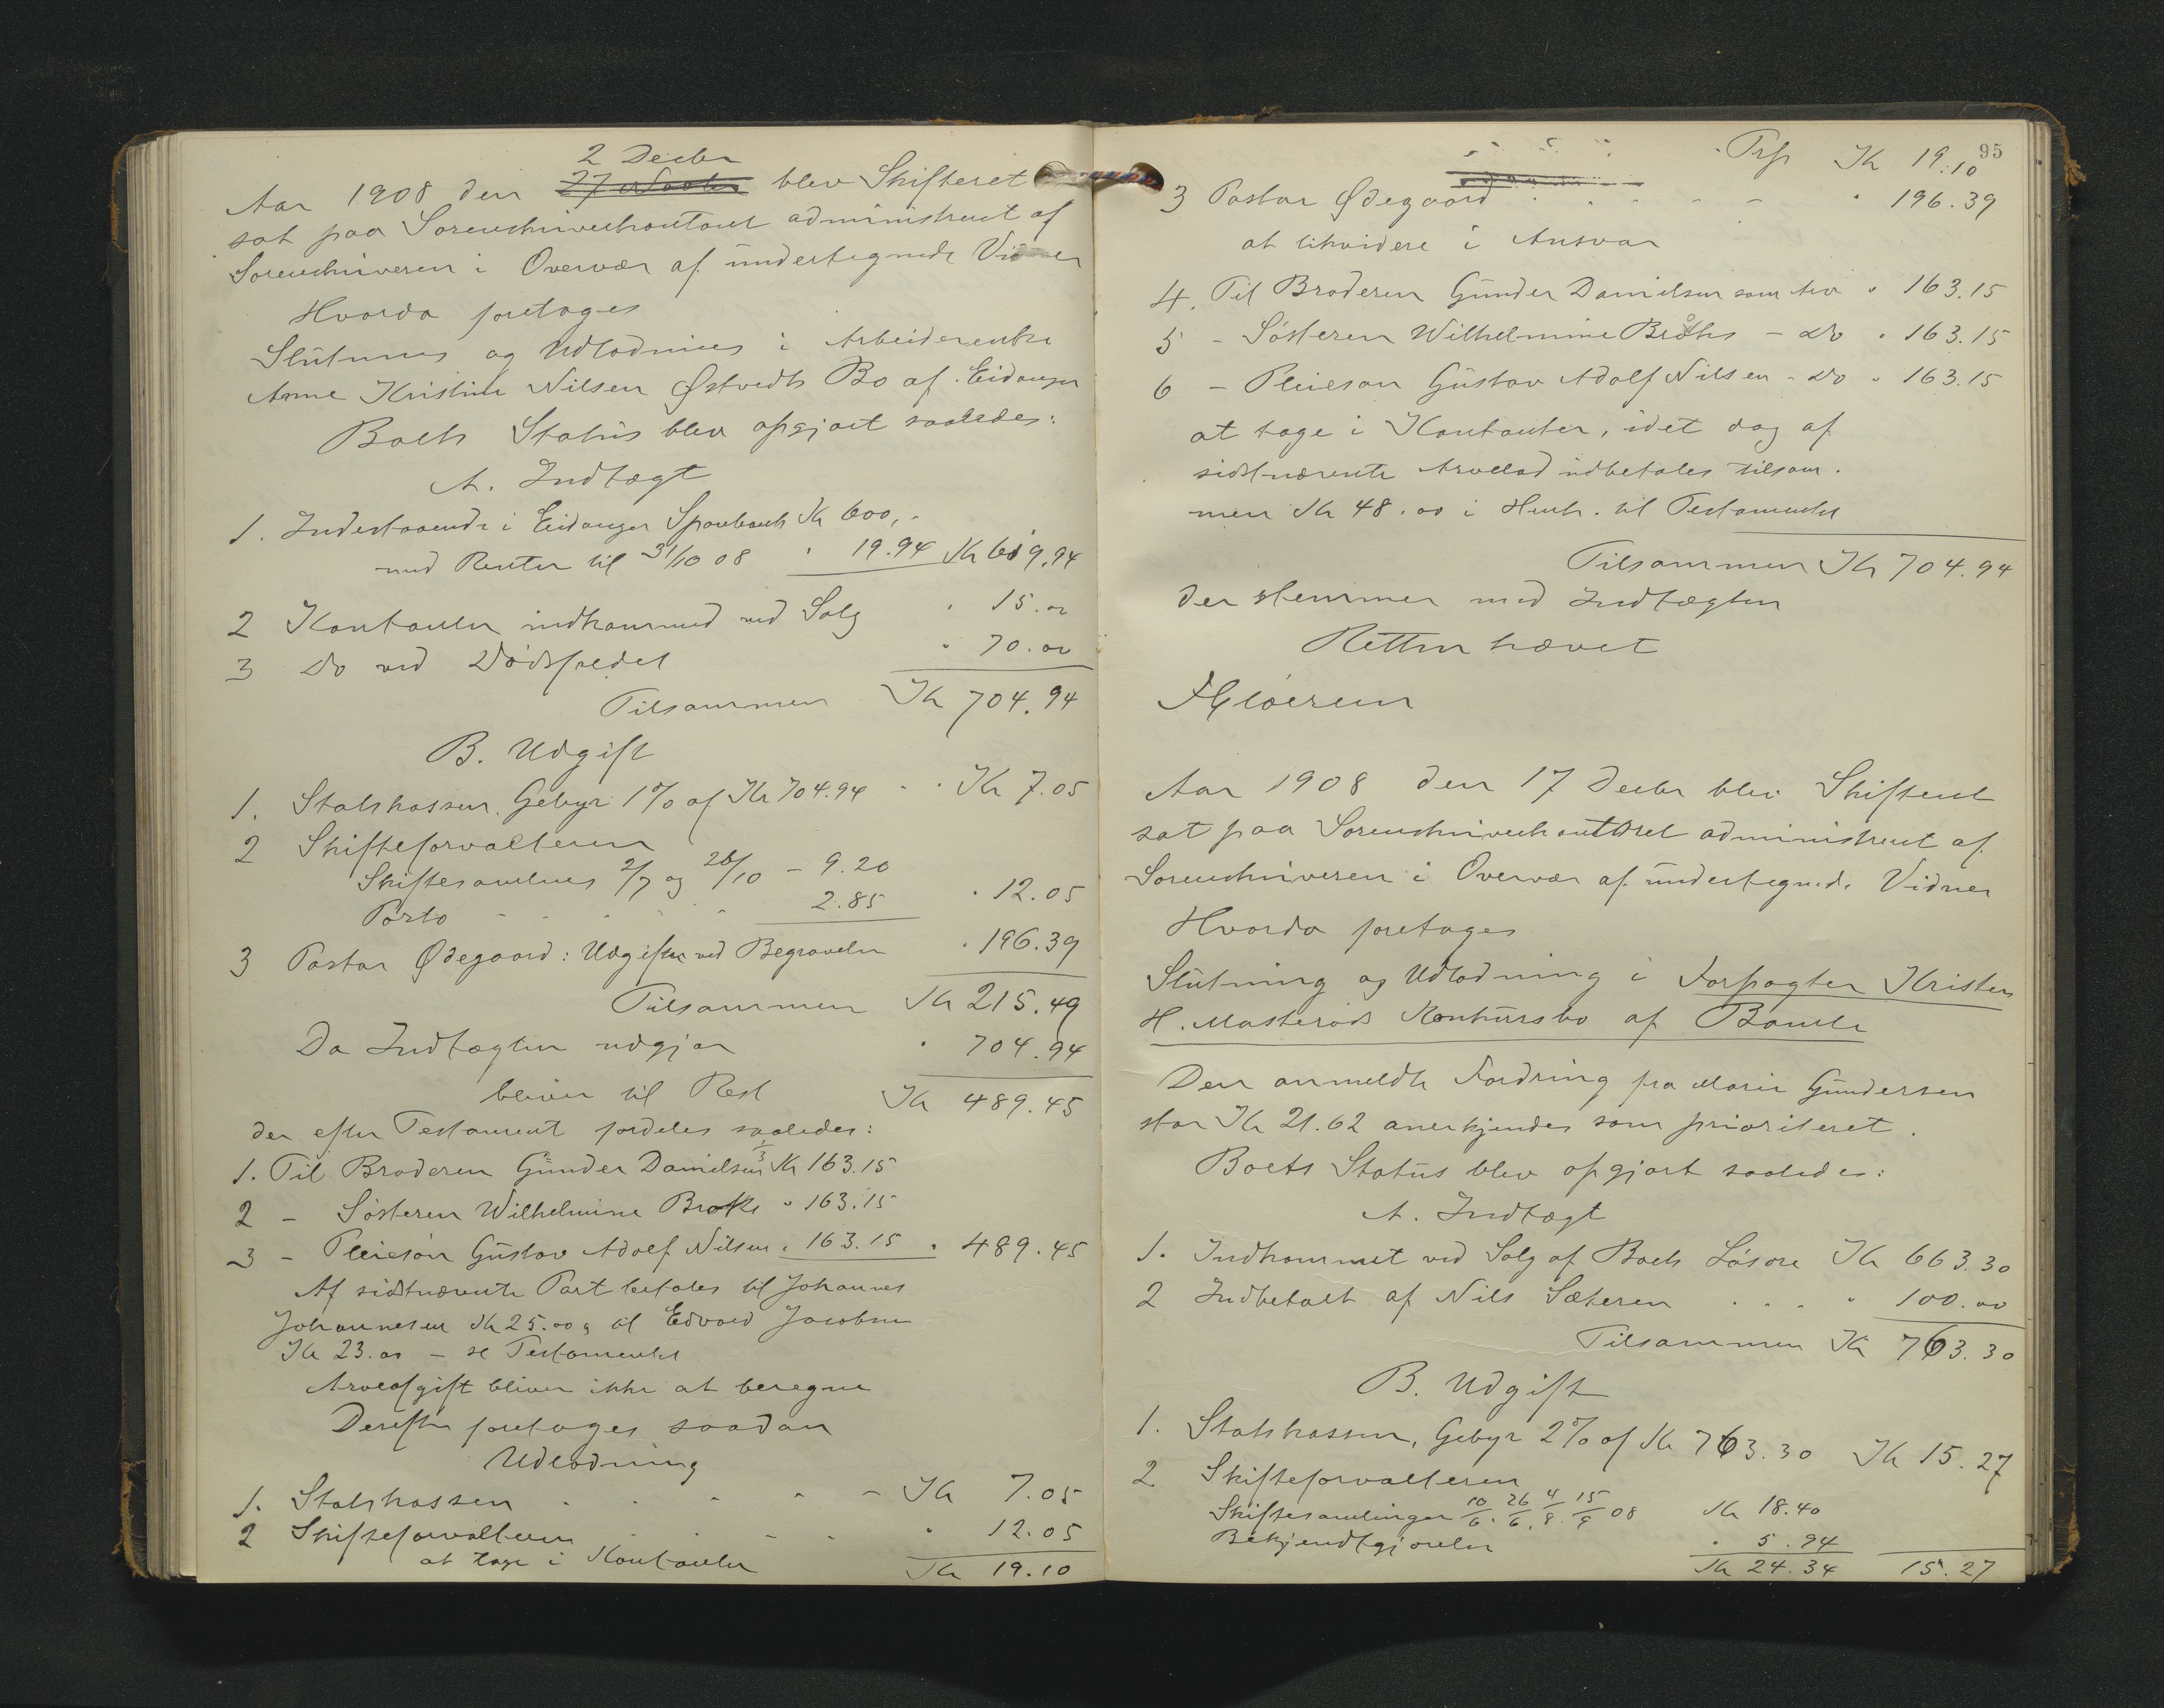 2 Decbr
Aar 1908 den 27 Novbr blev Skifteret
sat paa Sorenskriverkontoret administreret af
Sorenskriveren i Overvær af undertegnede Vidner
Hvorda foretages
Slutning og Udlodning i Arbeiderenke
Anne Kristine Nilsen Østvedts Bo af Eidanger
Boets Status blev opgjort saaledes:
A. Indtægt
1. Indestaaende i Eidanger Sparebank Kr 600,-
med Renter til 31/10 08 " 19.94 Kr 619.94
2 Kontanter indkommed ved Salg " 15.00
3 Do ved Dødsfaldet " 70.00
Tilsammen Kr 704.94
B. Udgift
1. Statskassen. Gebyr 1% af Kr 704.94 - - Kr 7.05
2 Skifteforvalteren
Skiftesamlings 2/7 og 26/10 - 9.20
Porto - - - - - 2.85 " 12.05
3 Pastor Ødegaard: Udgifter ved Begravelse " 196.39
Tilsammen Kr 215.49
Da Indtægten udgjør " 704.94
bliver til Rest Kr 489.45
der efter Testament fordeles saaledes:
1. Til Broderen Gunder Danielsen 1/3 Kr 163.15
2 - Søsteren Wilhelmine Broks " 163.15
3 - Pleiesøn Gustav Adolf Nilsen " 163.15 " 489.45
Af sidstnævnte Part betales til Johannes
Johannesen Kr 25.00 og til Edvard Jacobsen
Kr 23.00 - se Testamentet
Arveafgift bliver ikke at beregne
Derefter foretages saadan
Udlodning
1. Statskassen - - - - - Kr 7.05
2 Skifteforvalteren - - - - " 12.05
at tage i Kontanter Kr 19.10
95
Trsp Kr 19.10
3 Pastor Ødegaard - - - - - " 196.39
at likvidere i Ansvar
4. Til Broderen Gunder Danielsen som Arv " 163.15
5 - Søsteren Wilhelmine Broks - Do " 163.15
6 - Pleiesøn Gustav Adolf Nilsen - Do " 163.15
at tage i Kontanter, idet dog af
sidstnævnte Arvelod udbetales tilsam-
men Kr 48.00 i Henh. til Testamentet
Tilsammen Kr 704.94
der stemmer med Indtægten
Retten hævet
Aar 1908 den 17 Decbr blev Skifteret
sat paa Sorenskriverkontoret administreret af
Sorenskriveren i Overvær af undertegnede Vidner
Hvorda foretages
Slutning og Udlodning i Forpagter Kristen
H. Masterøds Konkursbo af Bamle
Den anmeldte Fordring fra Maria Gundersen
stor Kr 21.62 anerkjendes som prioriteret.
Boets Status blev opgjort saaledes:
A. Indtægt
1. Indkommet ved Salg af Boets Løsøre Kr 663.30
2 Indbetalt af Nils Sæteren - - - " 100.00
Tilsammen Kr 763.30
B. Udgift
1. Statskassen, Gebyr 2% af Kr 763.30 Kr 15.27
2 Skifteforvalteren
Skiftesamlinger 10/6. 26/6, 4/8. 15/9 08 Kr 18.40
Bekjendtgjørelse " 5.94
Kr 24.34 15.27